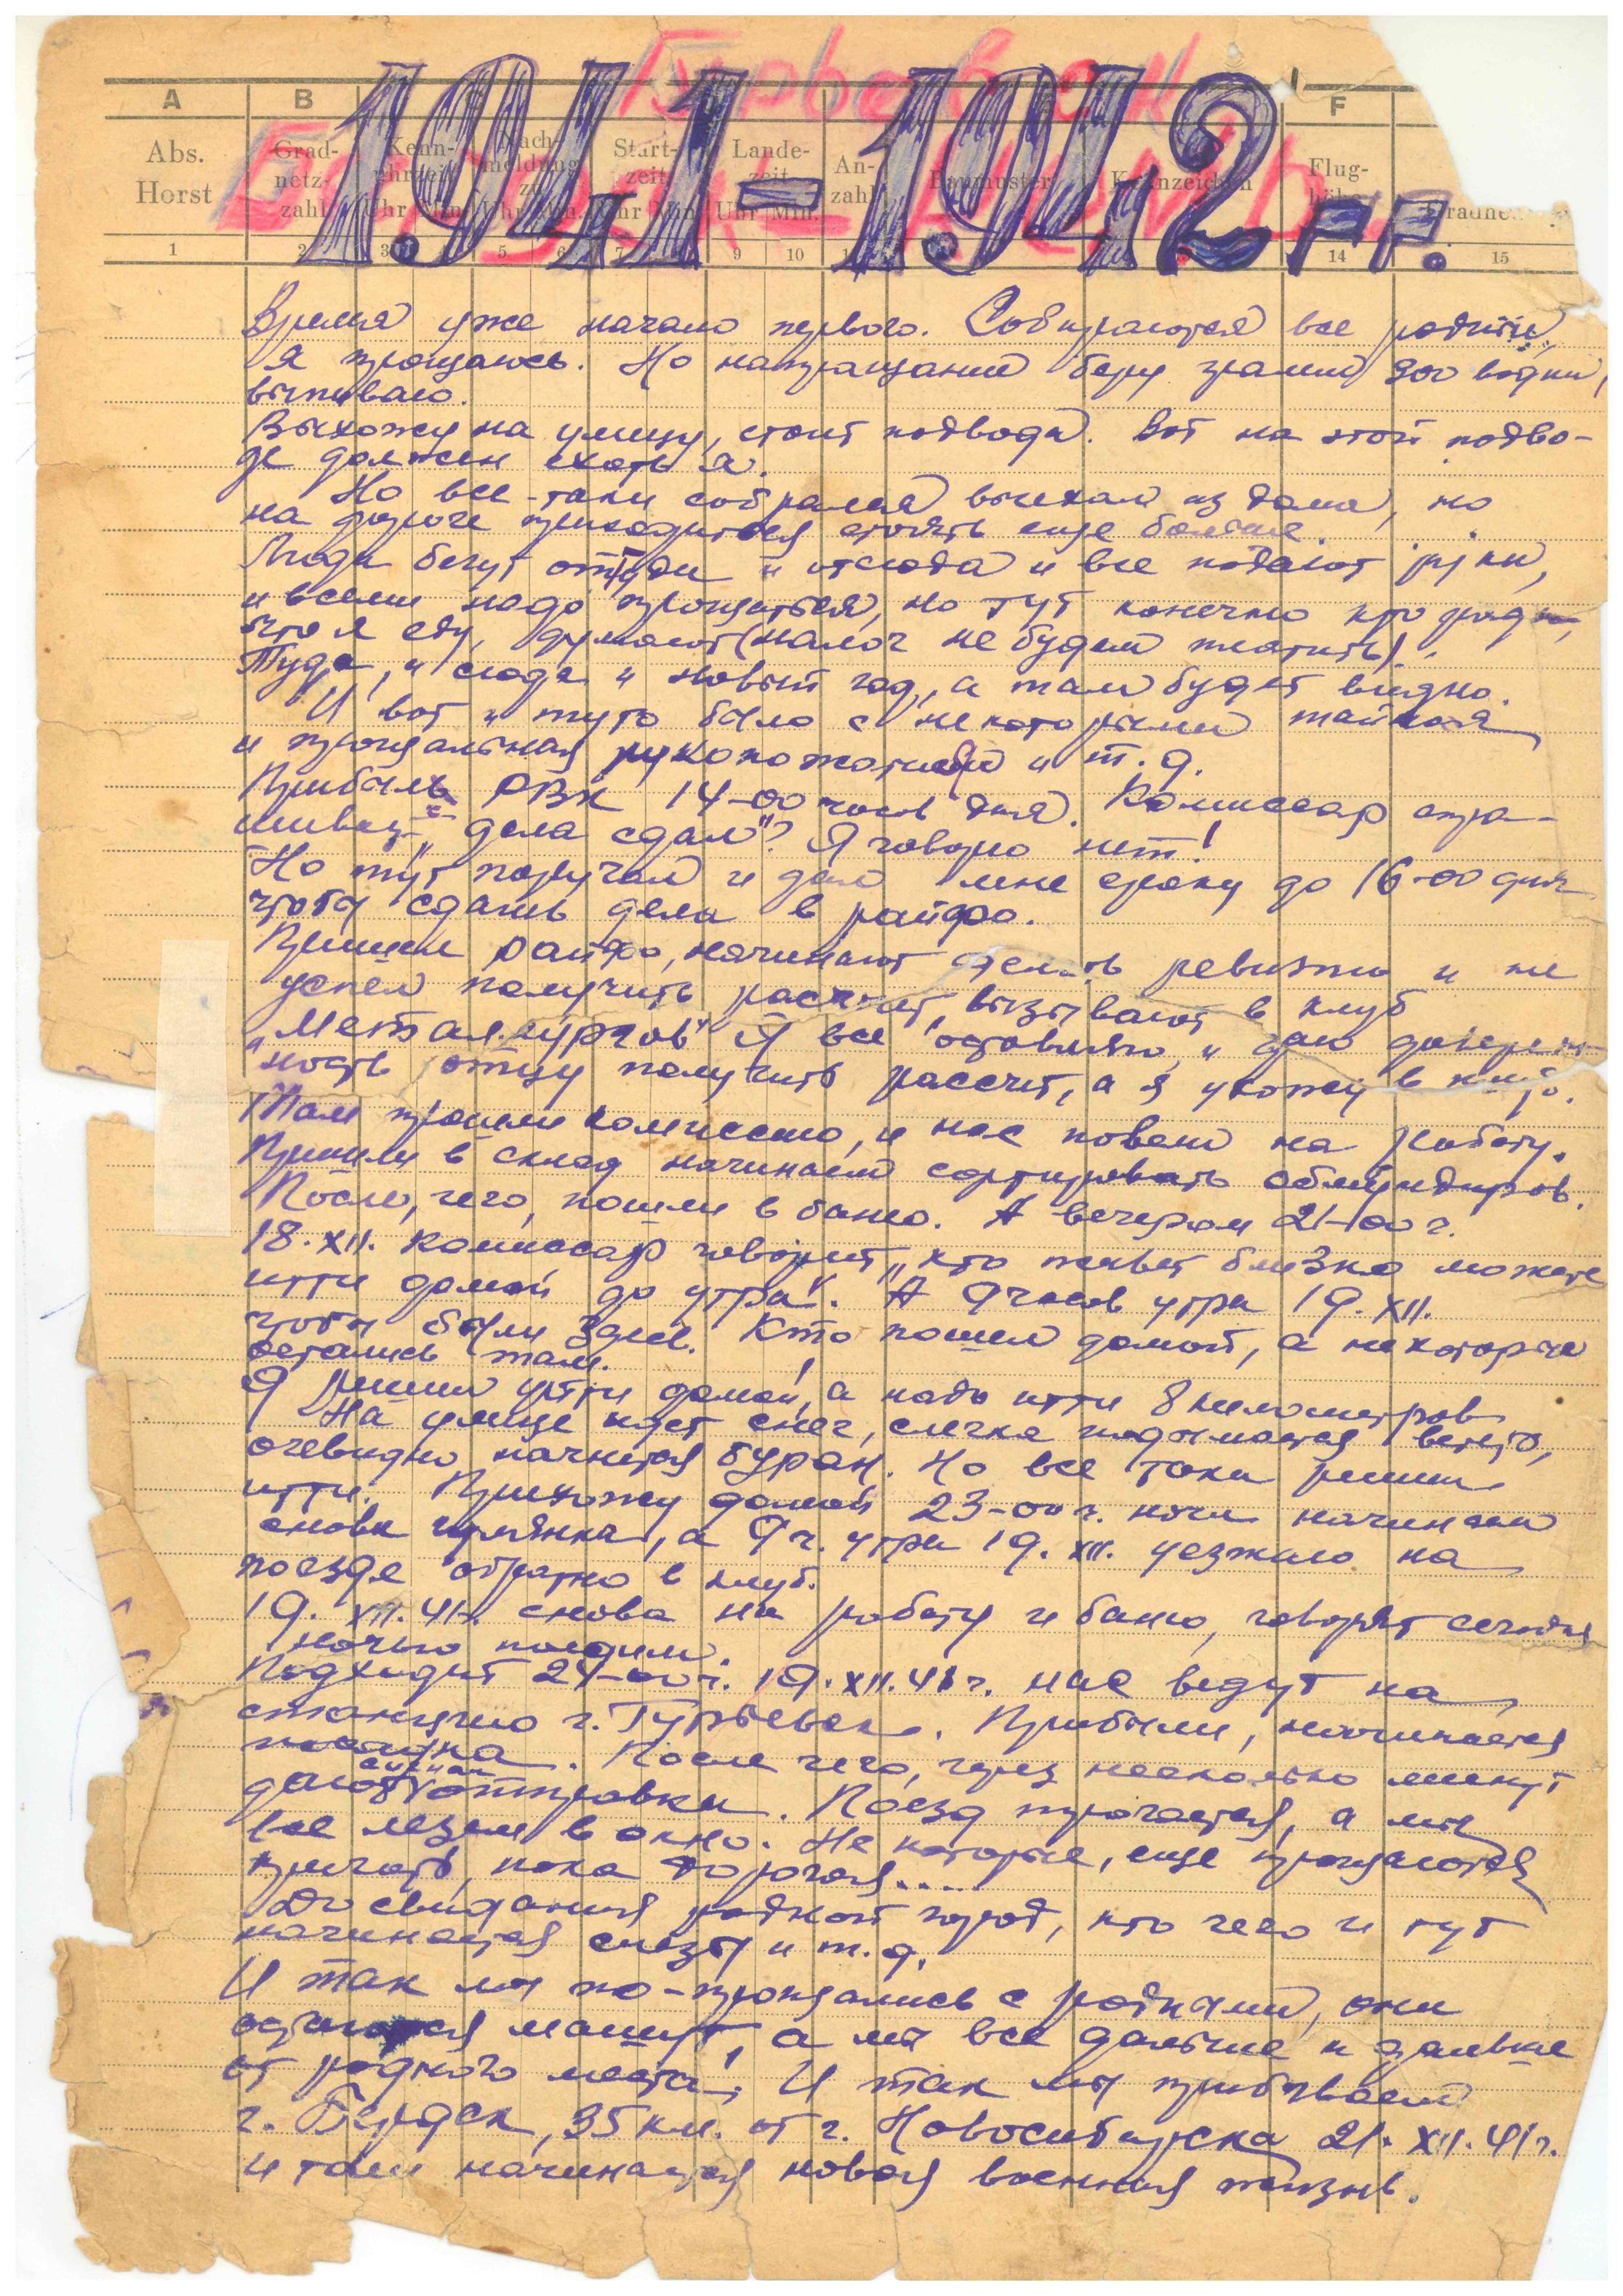 Гурьевск
1941-1942 гг.
A B F
Abs. Horst
Grad- netz- zahl
Kenn- uhrzeit Uhr Min.
Nach- meldung zu Uhr Min.
Start- zeit Uhr Min.
Lande- zeit Uhr Min.
An- zahl
Baumuster
Kennzeichen
Flug- höhe
1 2 3 4 5 6 7 9 10 14 15
Время уже начало первого. Собираются все родные,
я прощаюсь. Но на прощание беру грамм 300 водки,
выпиваю.
Выхожу на улицу, стоит подвода. Вот на этой подво-
де должен ехать я.
Но все-таки собрался выехал из дома, но
на дороге приходится стоять еще больше.
Люди бегут оттуда и отсюда и все подают руки,
и всеми надо прощаться, но тут конечно кто рад,
что я еду, думают (налог не будем платить).
Туда, и сюда и новый год, а там будет видно.
И вот и тут было с некоторыми тайная
и прощальная рукопожатий и т.д.
Прибыль РВК 14-00 часов дня. Комиссар спра-
шивает „дела сдал"? Я говорю нет!
Но тут поругал и дал мне сроку до 16-00 дня
чтобы сдать дела в райфо.
Пришел райфо, начинают делать ревизию и не
успел получить расчет, вызывают в клуб
„Металлургов" Я все оставляю, и даю доверен-
ность отцу получить рассчет, а я ухожу в клуб.
Там прошли комиссию, и нас повели на работу.
Пришли в склад начинаем сортировать обмундиров.
После, чего, пошли в баню. А вечером 21-00 ч.
18.XII. комиссар говорит „кто живет близко можете
итти домой до утра". А 9 часов утра 19.XII.
чтобы были здесь. Кто пошел домой, а некоторые
остались там.
Я решил уйти домой, а надо итти 8 километров
На улице идет снег, слегка подымается ветер,
очевидно начнется буран. Но все таки решил
итти. Прихожу домой 23-00 ч. ночи начинаем
снова гулянка, а 9 ч. утра 19.XII. уезжаю на
поезде обратно в клуб.
19.XII.41г. снова на работу и баню, говорят сегодня
ночью поедим.
Подходит 24-00 ч. 19.XII.41г. нас ведут на
станцию г. Гурьевск. Прибыли, начинается
посадка. После чего, через несколько минут
дают сигнал отправки. Поезд трогается, а мы
все лезем в окно. Некоторые, еще прощаются
кричать, пока дорогая.....
До свидания родной город, кто чего и тут
начинается слезы и т.д.
И так мы по-прощались с родными, они
остаются машут, а мы все дальше и дальше
от родного места! И так мы прибываем
г. Бердск, 35 км. от г. Новосибирска 21.XII.41г.
и там начинается новая военная жизнь.